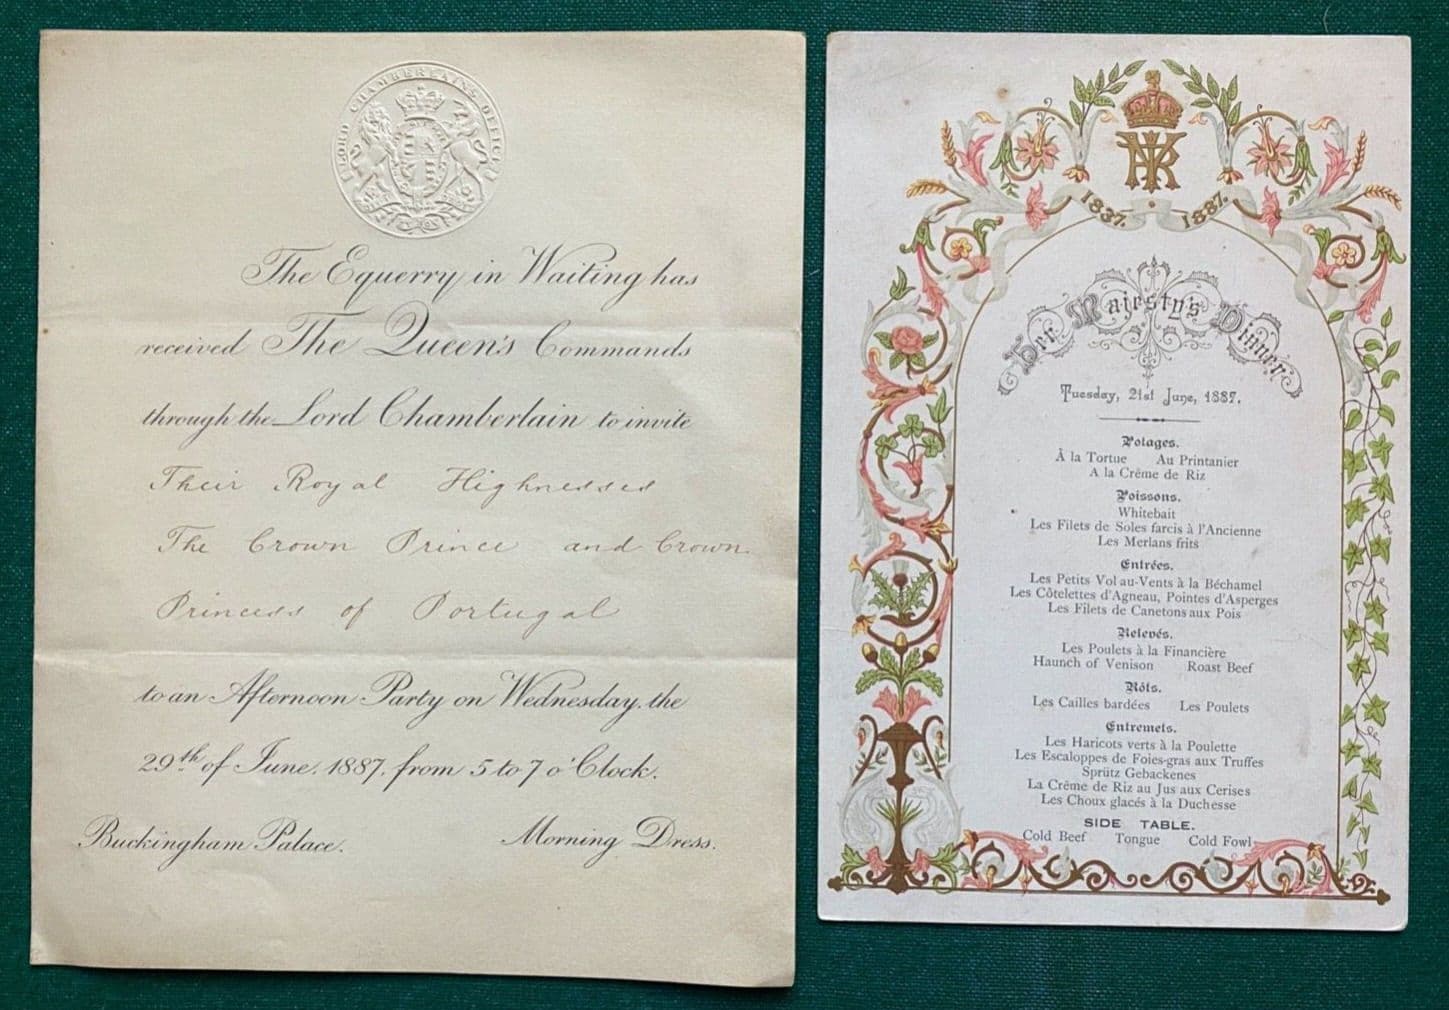 LORD CHAMBERLAIN'S OFFICE
The Equerry in Waiting has
received The Queen's Commands
through the Lord Chamberlain to invite
Their Royal Highnesses
The Crown Prince and Crown
Princess of Portugal
to an Afternoon Party on Wednesday, the
29th of June, 1887, from 5 to 7 o'Clock.
Buckingham Palace. Morning Dress.
VRI
1837. 1887.
Her Majesty's Dinner
Tuesday, 21st June, 1887.
Potages.
À la Tortue Au Printanier
A la Crême de Riz
Poissons.
Whitebait
Les Filets de Soles farcis à l'Ancienne
Les Merlans frits
Entrées.
Les Petits Vol au-Vents à la Béchamel
Les Côtelettes d'Agneau, Pointes d'Asperges
Les Filets de Canetons aux Pois
Relevés.
Les Poulets à la Financière
Haunch of Venison Roast Beef
Rôts.
Les Cailles bardées Les Poulets
Entremets.
Les Haricots verts à la Poulette
Les Escaloppes de Foies-gras aux Truffes
Sprütz Gebackenes
La Crême de Riz au Jus aux Cerises
Les Choux glacés à la Duchesse
SIDE TABLE.
Cold Beef Tongue Cold Fowl